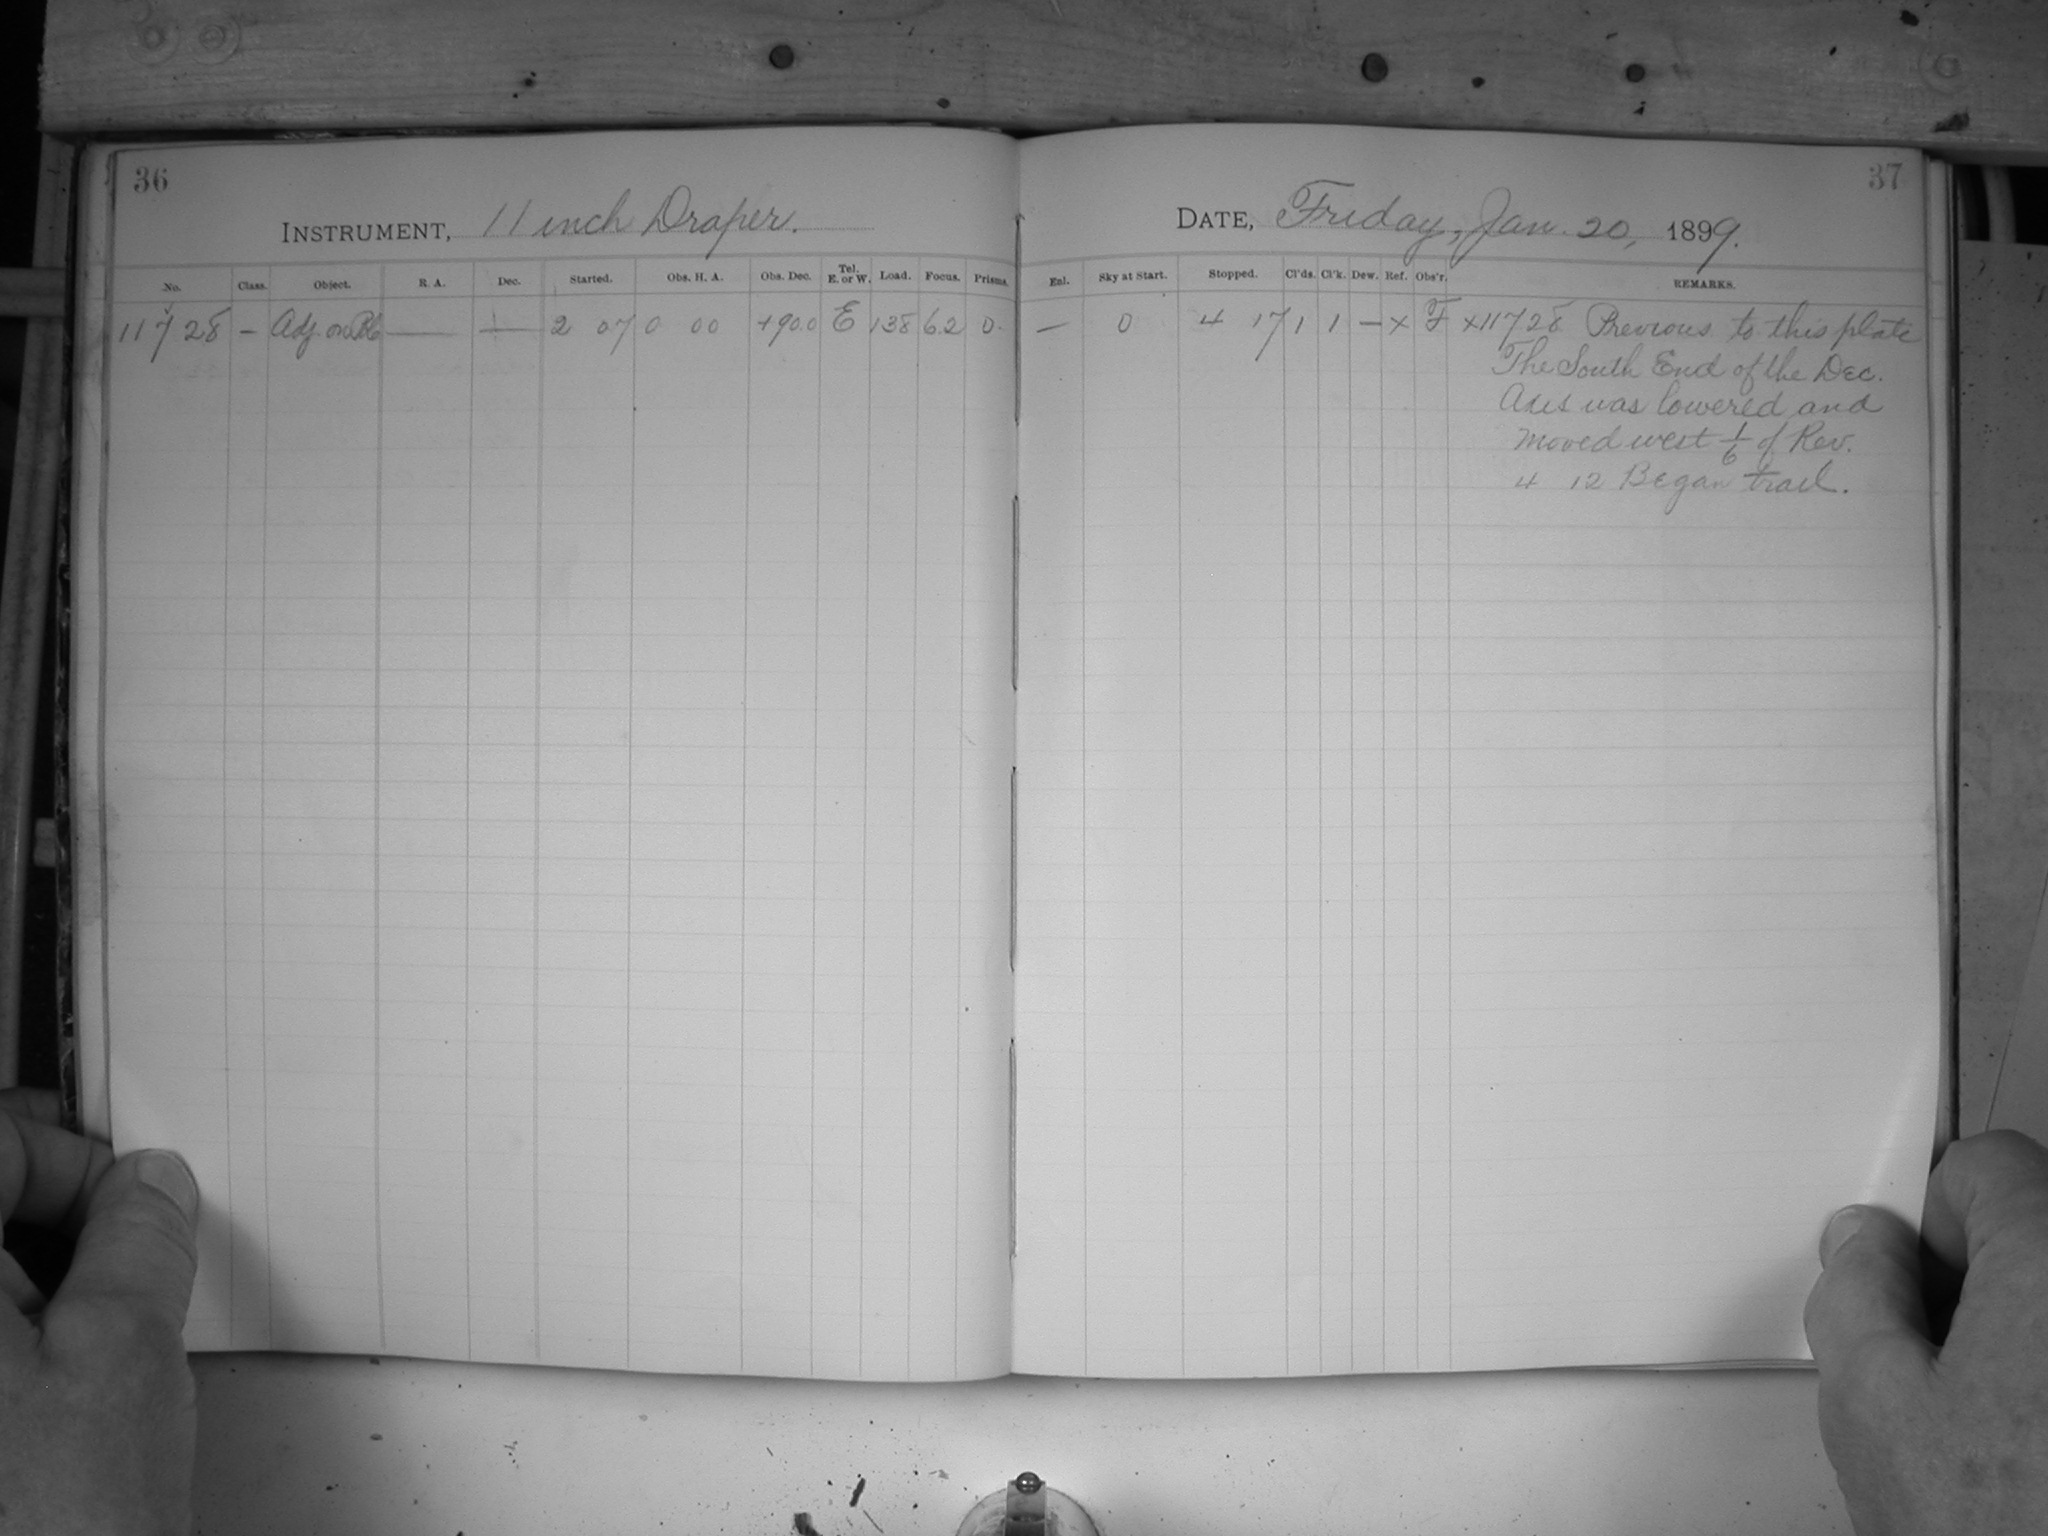 36
INSTRUMENT, 11 inch Draper.
No. Class. Object. R. A. Dec. Started. Obs. H. A. Obs. Dec. Tel. E. or W. Load. Focus. Prisms.
11728 — Adj. on — — 2 07 0 00 +90.0 E 138 6.2 0.
37
DATE, Friday, Jan. 20, 1899.
Enl. Sky at Start. Stopped. Cl'ds. Cl'k. Dew. Ref. Obs'r. REMARKS.
— 0 4 17 1 1 — x F x11728 Previous to this plate
The South End of the Dec.
Axis was lowered and
moved west 1/6 of Rev.
4 12 Began trail.